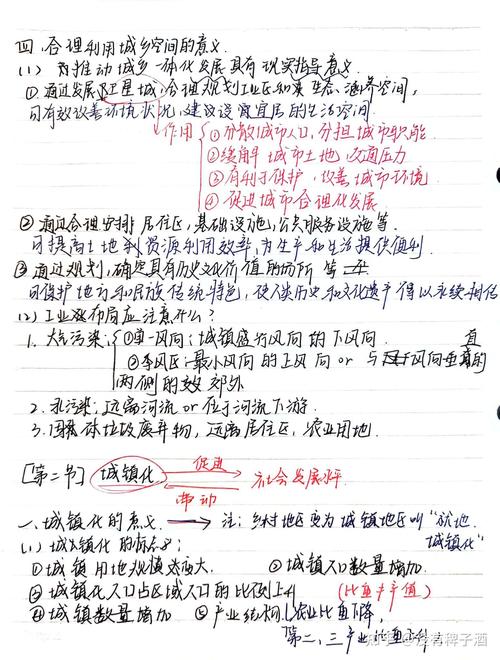 四、合理利用城乡空间的意义.
(1) 对推动城乡一体化发展具有现实指导意义.
①通过发展卫星城,合理规划工业区和 生态涵养空间,
可有效改善环境状况,建设 宜居的生活空间.
作用 ①分散城市人口,分担城市职能
②缓解 城市土地,交通压力
③有利于保护,改善城市环境
④ 促进城市合理化发展
② 通过合理安排 居住区,基础设施,公共服务设施等.
可提高土地利 资源利用效率,为生产和生活提供便利.
③ 通过规划,确定具有历史文化价值的场所 等
可保护地方和民族传统特色,使人类历史和文化遗产得以永续相传
(2) 工业 布局应注意什么?
1. 大气污染: ①单一风向:城镇盛行风向的下风向.
②季风区:最小风向的上风向or 与 风向垂直的
两侧的 郊外
2. 水污染:远离河流 or 位于河流下游.
3. 固 体垃圾废弃物,远离居住区,农业用地.
[第二节] 城镇化 促进 社会发展水平.
带动
一、城镇化的意义. → 注:乡村地区变为城镇地区叫“就地
城镇化”
(1) 城镇化的标志:
①城镇用地规模 大. ② 城镇人口数量增加.
③ 城镇化人口占区域人口的比例上升 (比重≠产值)
④ 城镇数量增加 ⑤ 产业结构 农业比重下降,
第二、三产业比重上升
知乎 @